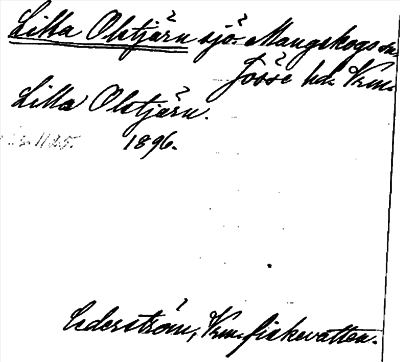 Lilla Olstjärn sjö. Mangskogs sn
Jösse hd. Vrm.
Lilla Olstjärn.
1896.
Cederström, Vrm. fiskevatten.